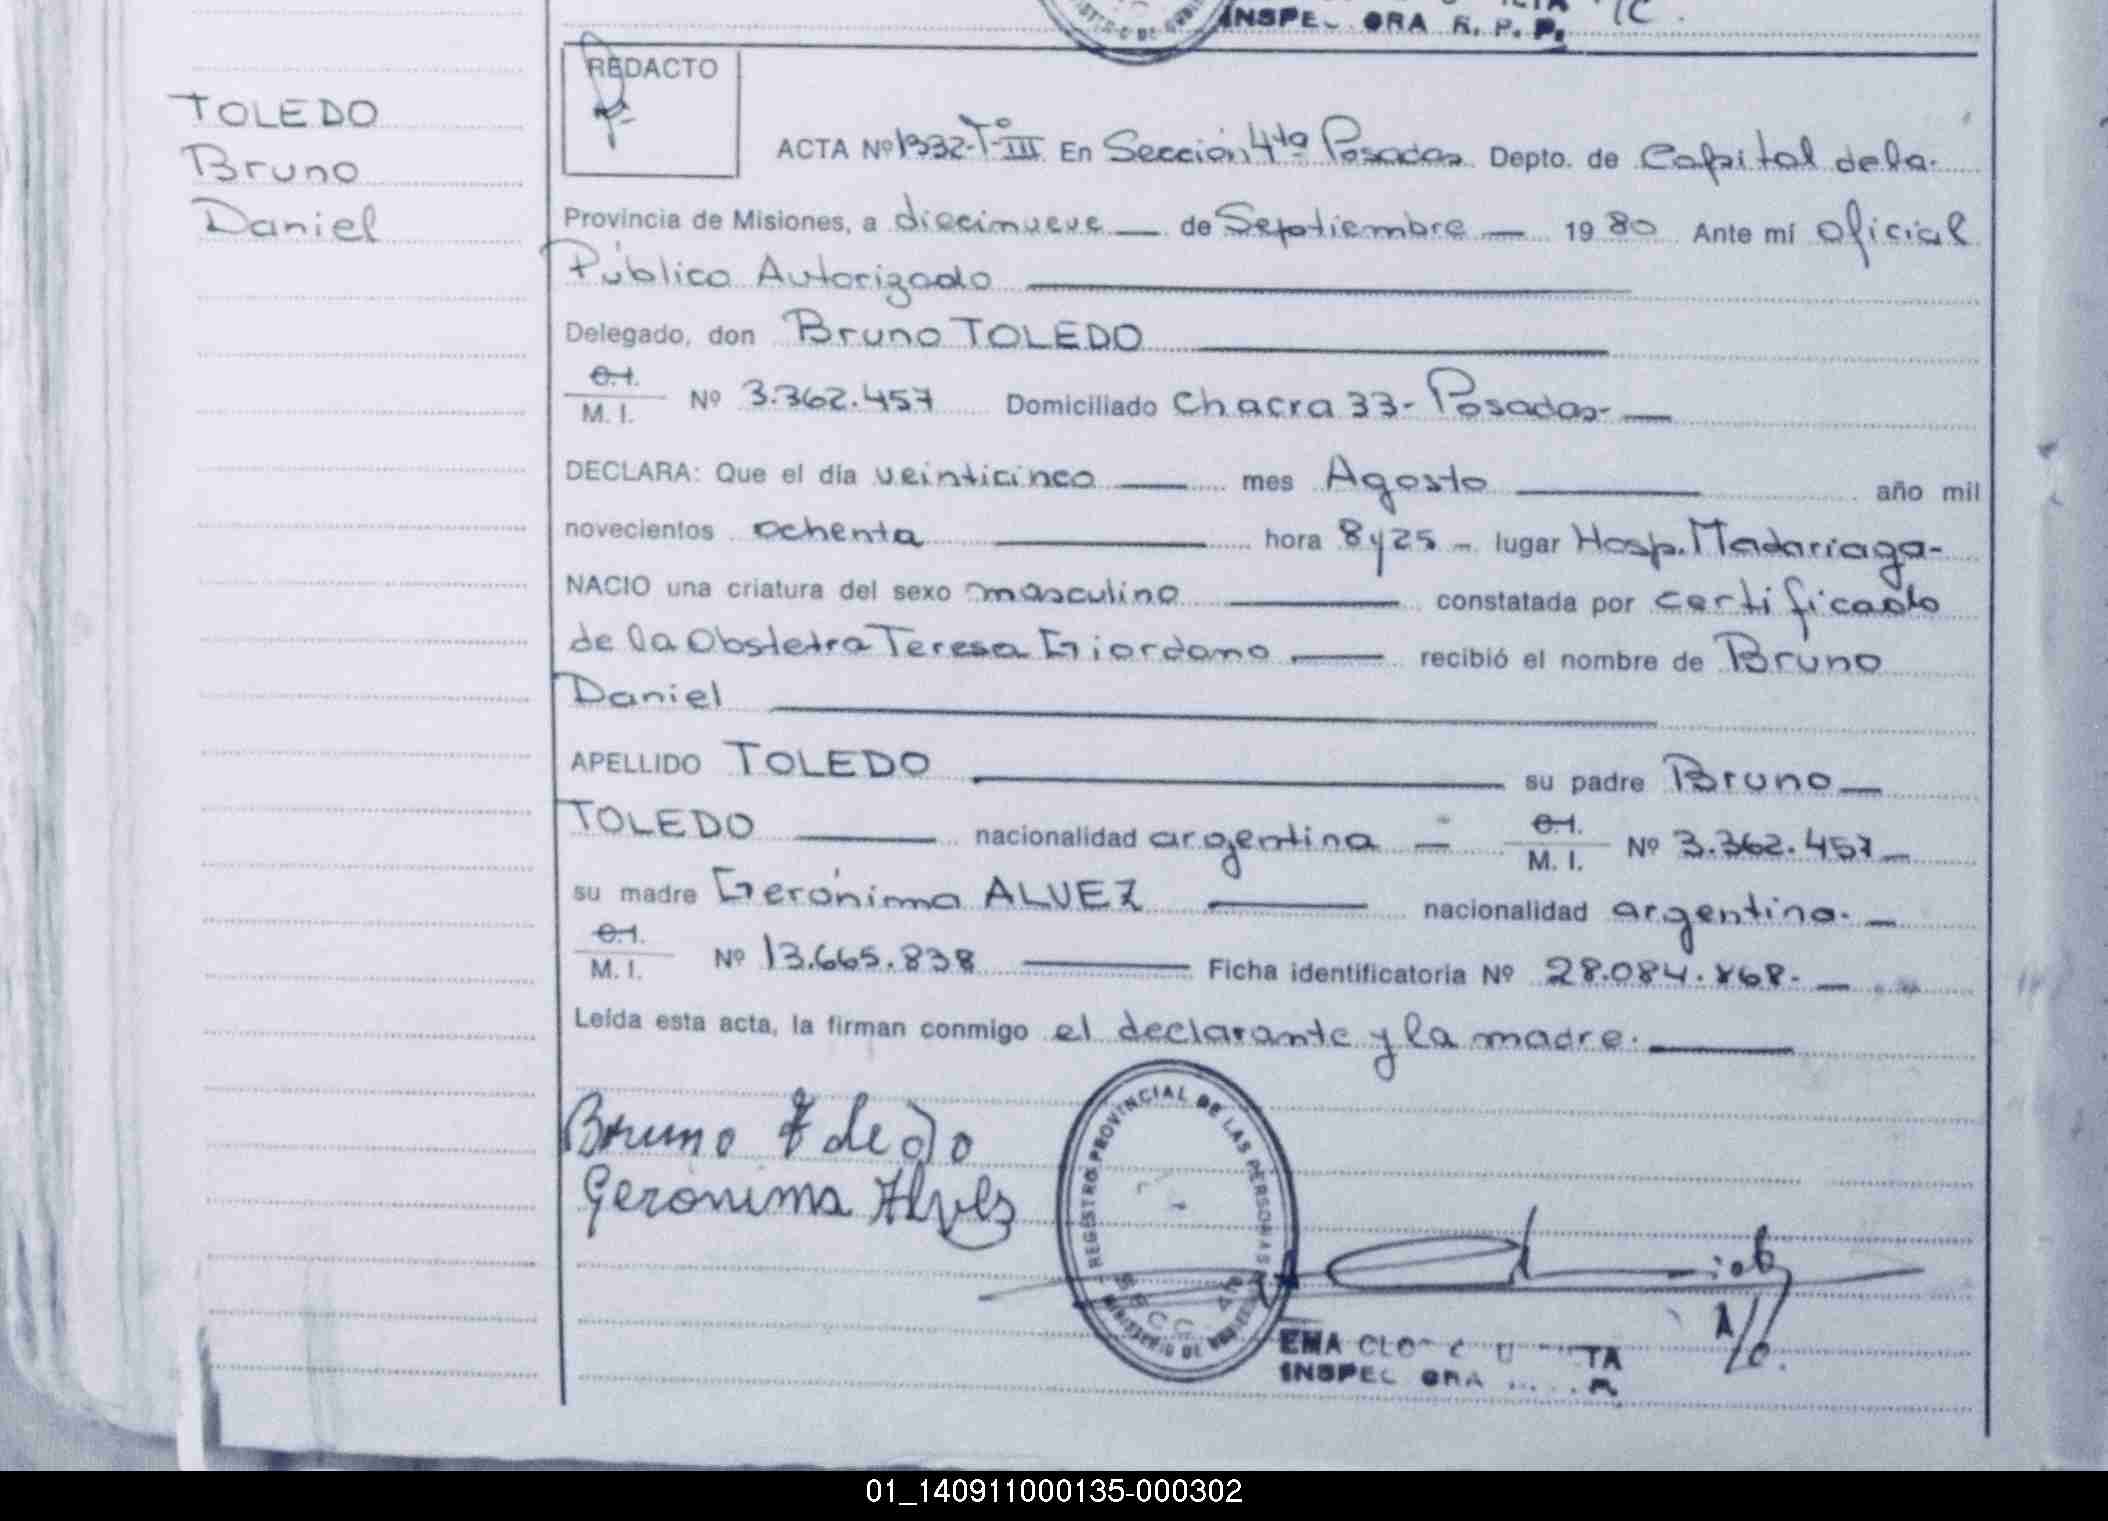 INSPE ORA R. P. P.
REDACTO
TOLEDO
Bruno
Daniel
ACTA Nº 1332-Tº III En Sección 4ta Posadas Depto. de Capital de la
Provincia de Misiones, a diecinueve — de Septiembre — 1980 Ante mí Oficial
Público Autorizado
Delegado, don Bruno TOLEDO
C.I.
M. I. Nº 3.362.457 Domiciliado Chacra 33- Posadas-
DECLARA: Que el día veinticinco — mes Agosto — año mil
novecientos ochenta — hora 8 y 25 - lugar Hosp. Madariaga-
NACIO una criatura del sexo masculino — constatada por certificado
de la Obstetra Teresa Giordano — recibió el nombre de Bruno
Daniel
APELLIDO TOLEDO — su padre Bruno —
TOLEDO — nacionalidad argentina — C.I. M. I. Nº 3.362.457 —
su madre Gerónima ALVEZ — nacionalidad argentina. —
C.I.
M. I. Nº 13.665.838 — Ficha identificatoria Nº 28.084.868. —
Leída esta acta, la firman conmigo el declarante y la madre.
Bruno Toledo
Gerónima Alves
REGISTRO PROVINCIAL DE LAS PERSONAS
SECC. 4ta
MINISTERIO DE GOBIERNO
EMA CLO TA
INSPEC ORA
01_140911000135-000302